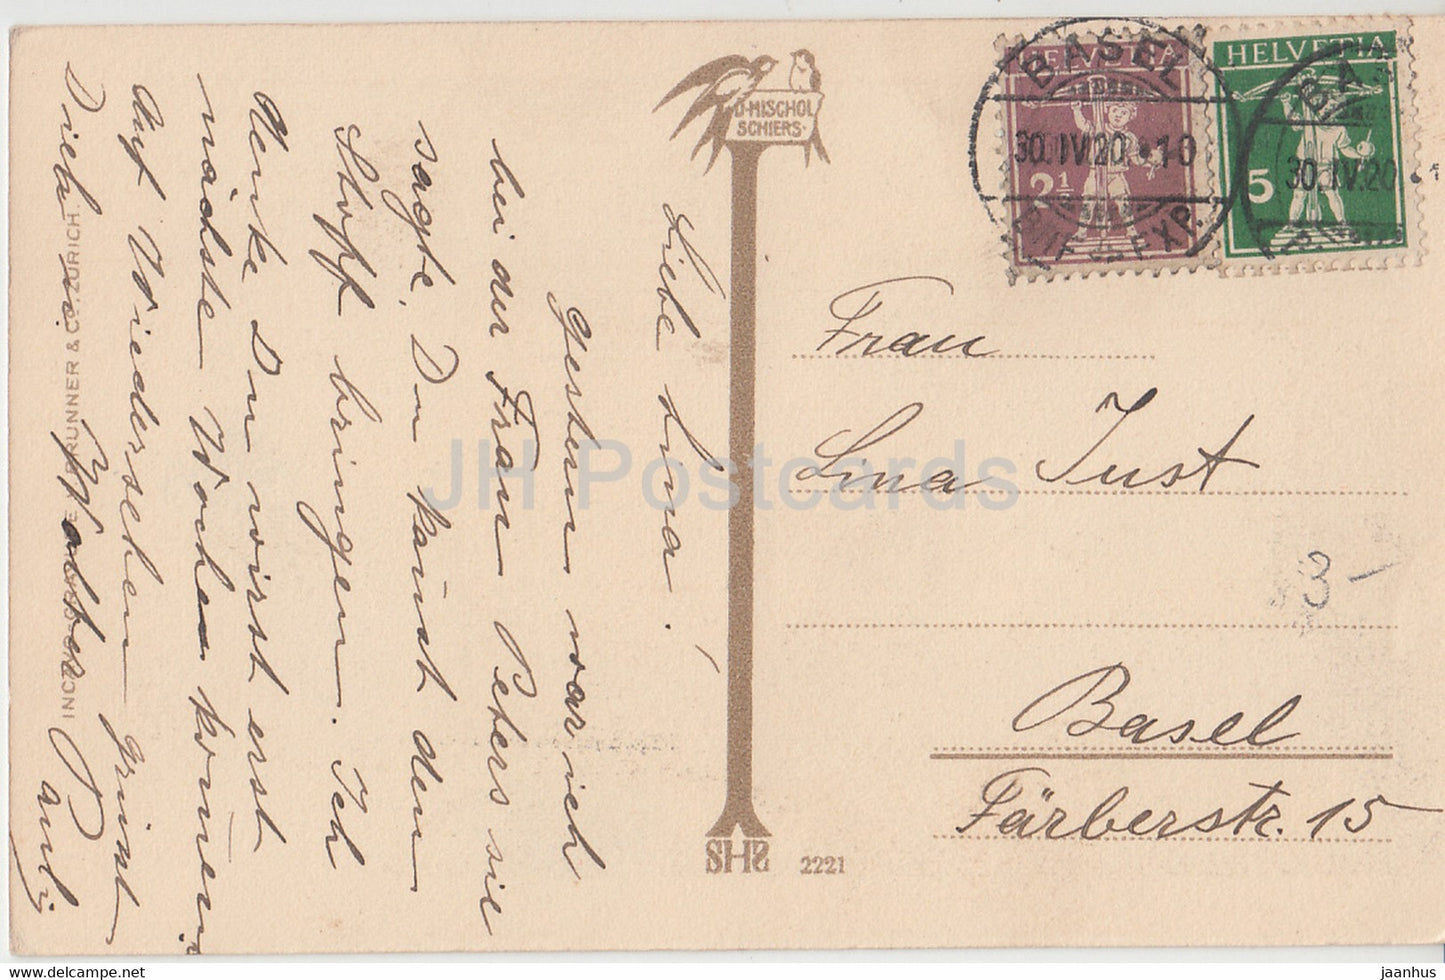 Liebe Lina!
Gestern war ich
bei der Frau Peters sie
sagte, Du kannst den
Stoff bringen. Ich
denke Du wirst erst
nächste Woche kommen
Auf Wiedersehen grüsst
Dich
Pauli
D. MISCHOL
SCHIERS.
HELVETIA
2½
HELVETIA
5
BASEL
30. IV. 20. 10
BRIEF EXP.
30. IV. 20
Frau
Lina Just
Basel
Färberstr. 15
3 –
SHS 2221
BRUNNER & CO. ZÜRICH
JH Postcards
www.delcampe.net
jaanhus